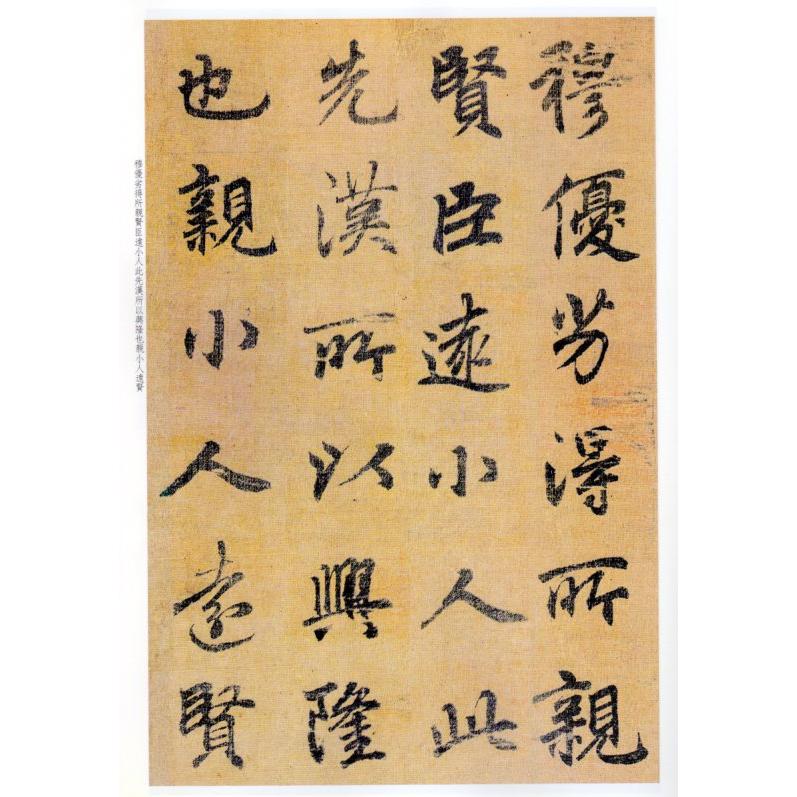 穆優劣得所親
賢臣遠小人此
先漢所以興隆
也親小人遠賢
穆優劣得所親賢臣遠小人此先漢所以興隆也親小人遠賢